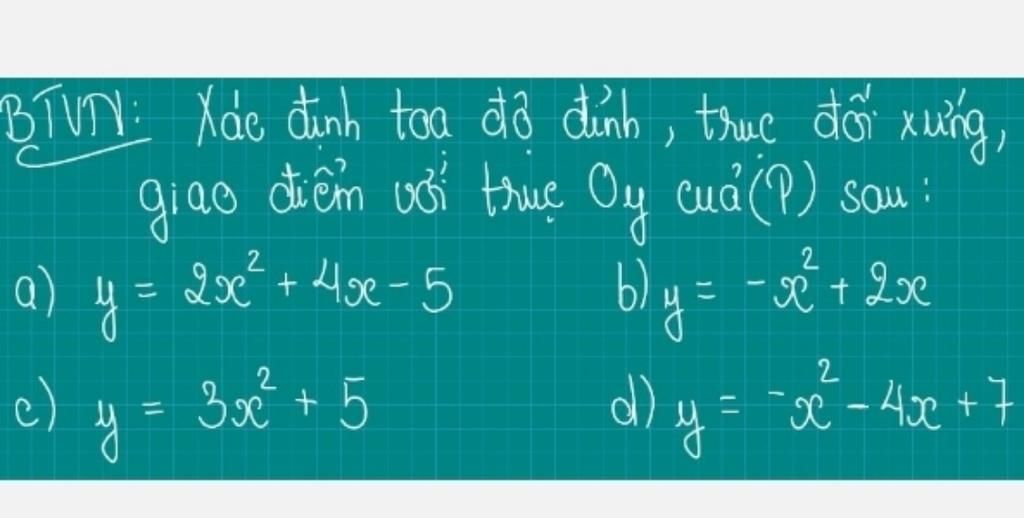 BTVN: Xác định toạ độ đỉnh, trục đối xứng,
giao điểm với trục Oy của (P) sau:
a) y = 2x² + 4x - 5 b) y = -x² + 2x
c) y = 3x² + 5 d) y = -x² - 4x + 7